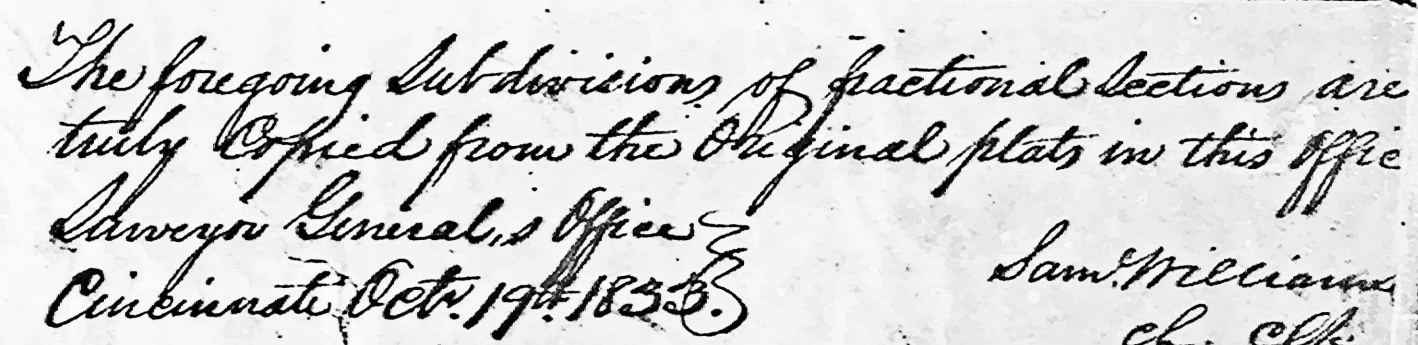 The foregoing Subdivisions of fractional Sections are
truly Copied from the Original plats in this Offic
Surveyor General,s Office
Cincinnati Octr. 19th. 1833.
Saml. Williams
Ch. Clk